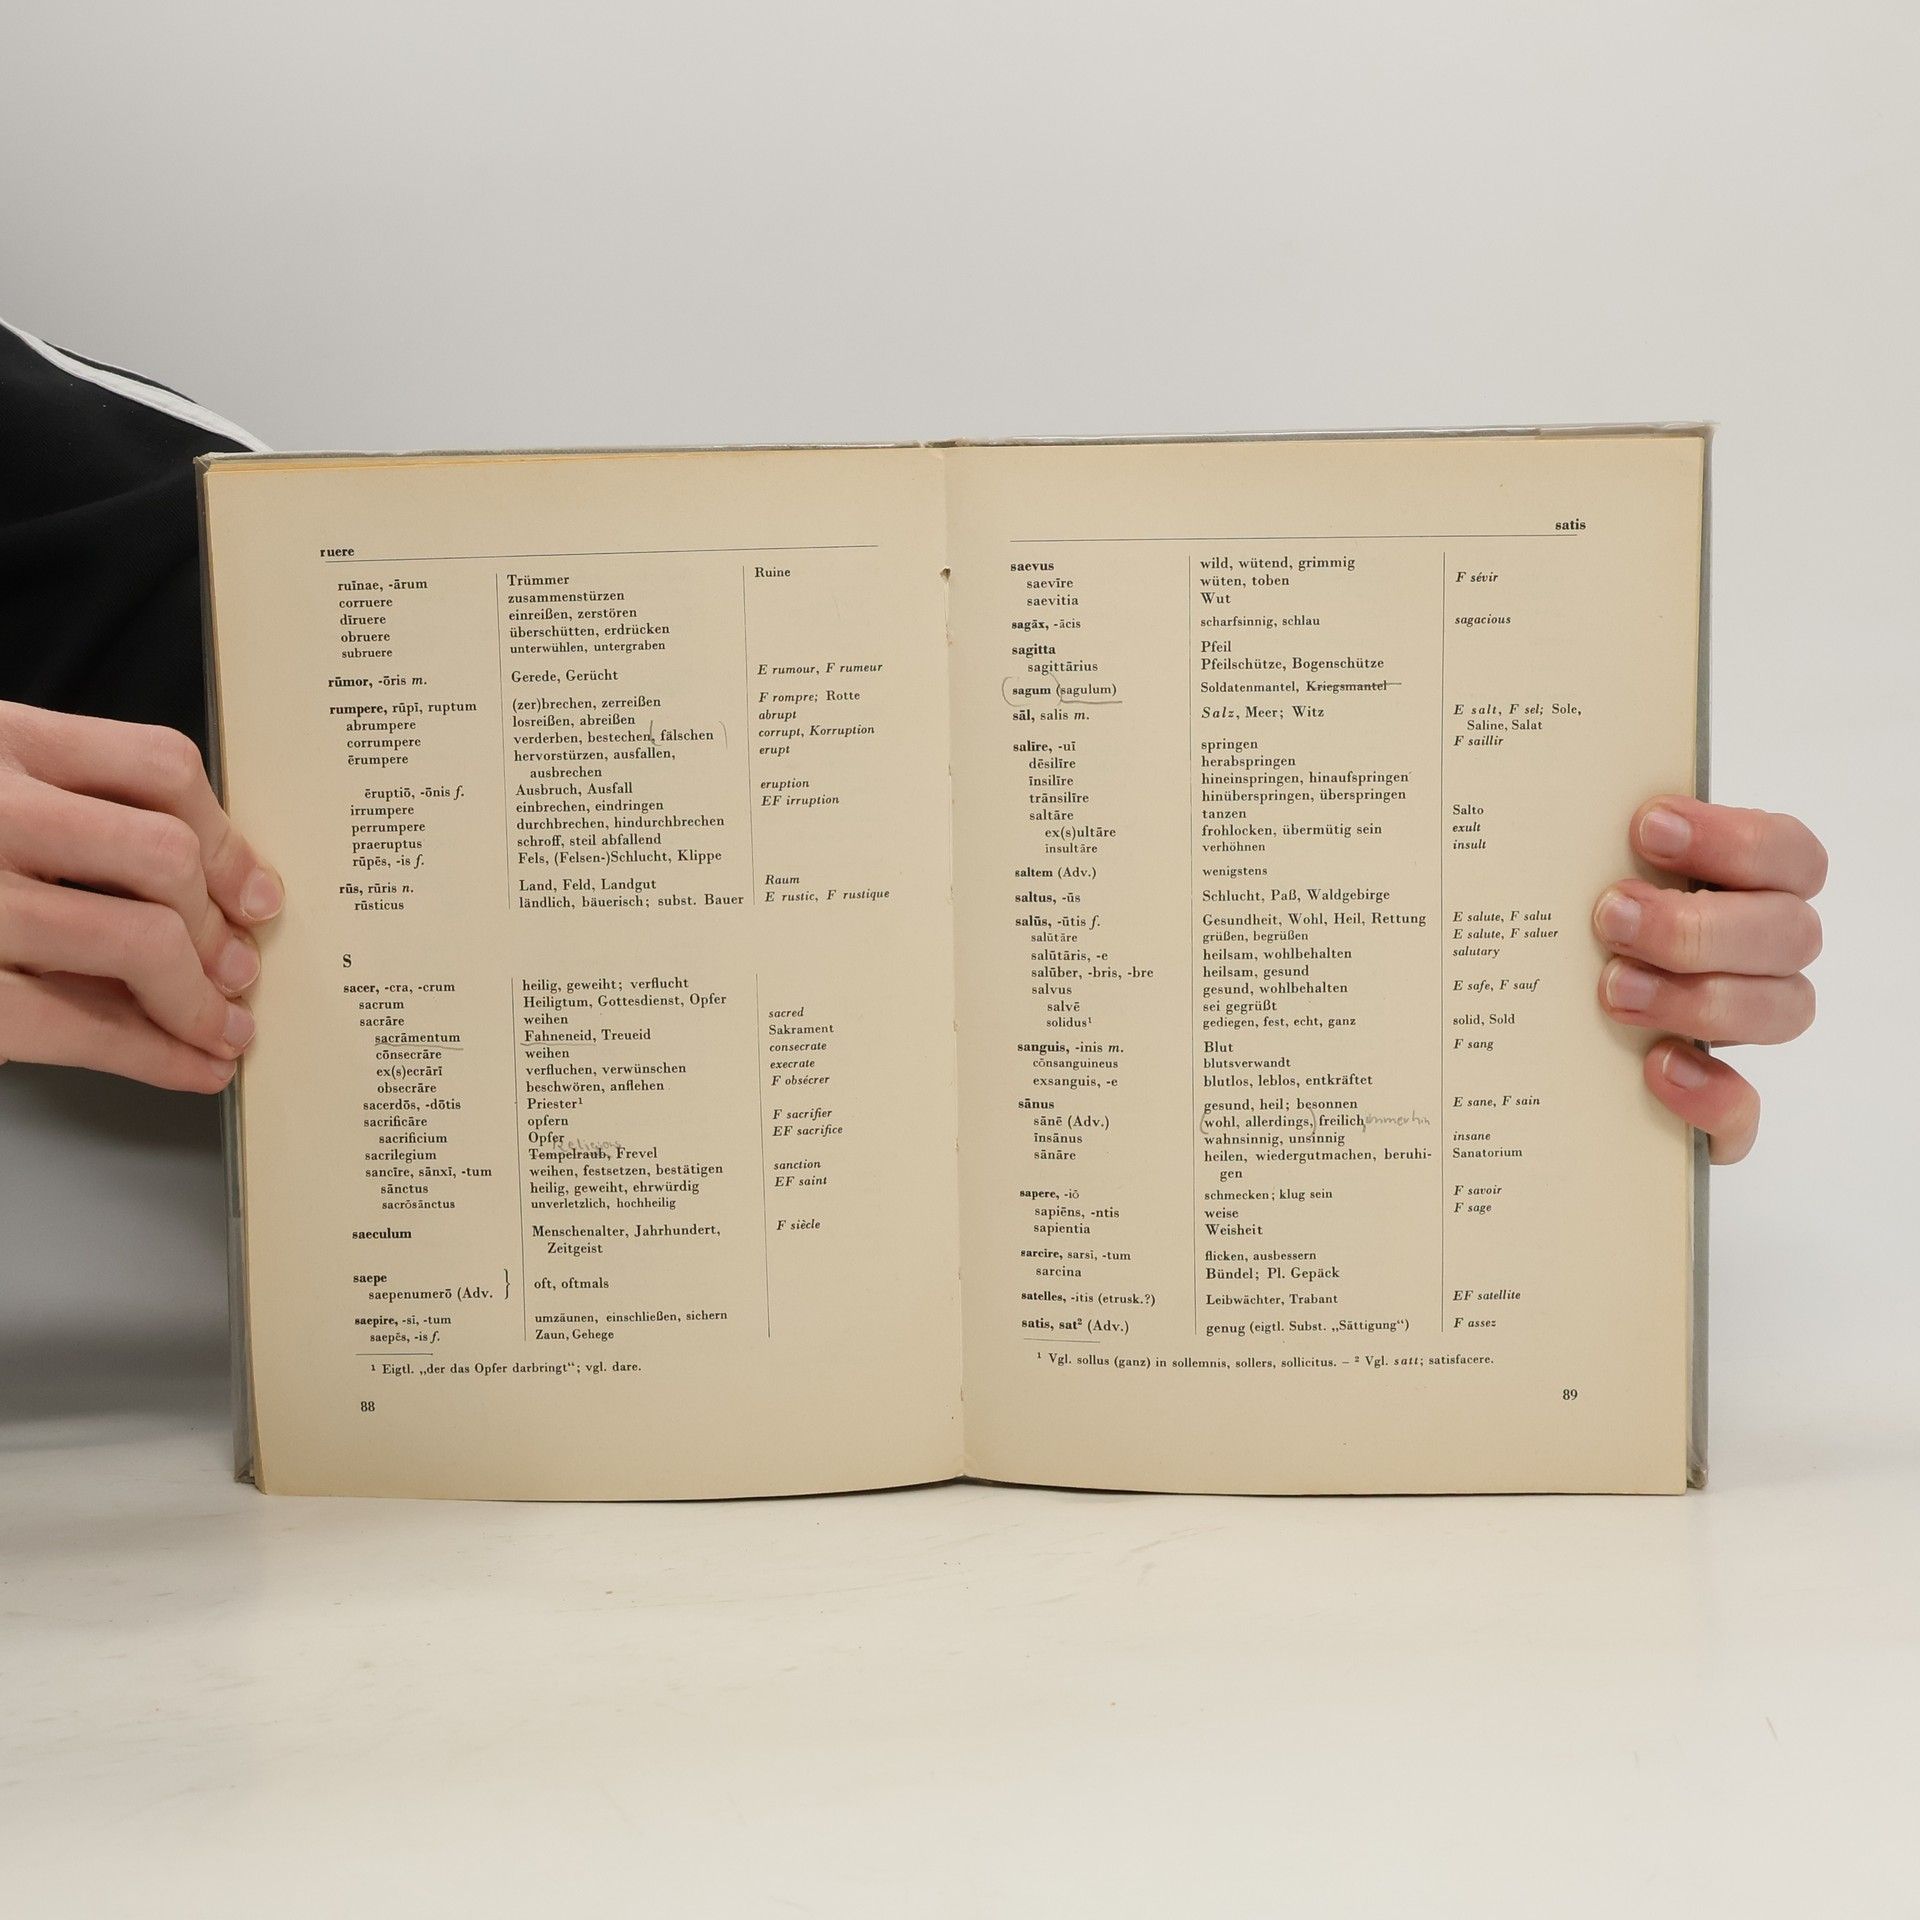 ruere
ruīnae, -ārum Trümmer Ruine
corruere zusammenstürzen
dīruere einreißen, zerstören
obruere überschütten, erdrücken
subruere unterwühlen, untergraben
rūmor, -ōris m. Gerede, Gerücht E rumour, F rumeur
rumpere, rūpī, ruptum (zer)brechen, zerreißen F rompre; Rotte
abrumpere losreißen, abreißen abrupt
corrumpere verderben, bestechen, fälschen corrupt, Korruption
ērumpere hervorstürzen, ausfallen, erupt
ausbrechen
ēruptiō, -ōnis f. Ausbruch, Ausfall eruption
irrumpere einbrechen, eindringen EF irruption
perrumpere durchbrechen, hindurchbrechen
praeruptus schroff, steil abfallend
rūpēs, -is f. Fels, (Felsen-)Schlucht, Klippe
rūs, rūris n. Land, Feld, Landgut Raum
rūsticus ländlich, bäuerisch; subst. Bauer E rustic, F rustique
S
sacer, -cra, -crum heilig, geweiht; verflucht
sacrum Heiligtum, Gottesdienst, Opfer
sacrāre weihen sacred
sacrāmentum Fahneneid, Treueid Sakrament
cōnsecrāre weihen consecrate
ex(s)ecrārī verfluchen, verwünschen execrate
obsecrāre beschwören, anflehen F obsécrer
sacerdōs, -dōtis Priester¹
sacrificāre opfern F sacrifier
sacrificium Opfer EF sacrifice
sacrilegium Tempelraub, Frevel
sancīre, sānxī, -tum weihen, festsetzen, bestätigen sanction
sānctus heilig, geweiht, ehrwürdig EF saint
sacrōsānctus unverletzlich, hochheilig
saeculum Menschenalter, Jahrhundert, F siècle
Zeitgeist
saepe
saepenumerō (Adv. } oft, oftmals
saepīre, -sī, -tum umzäunen, einschließen, sichern
saepēs, -is f. Zaun, Gehege
¹ Eigtl. „der das Opfer darbringt“; vgl. dare.
88
satis
saevus wild, wütend, grimmig
saevīre wüten, toben F sévir
saevitia Wut
sagāx, -ācis scharfsinnig, schlau sagacious
sagitta Pfeil
sagittārius Pfeilschütze, Bogenschütze
sagum (sagulum) Soldatenmantel, Kriegsmantel
sāl, salis m. Salz, Meer; Witz E salt, F sel; Sole,
Saline, Salat
salīre, -uī springen F saillir
dēsilīre herabspringen
īnsilīre hineinspringen, hinaufspringen
trānsilīre hinüberspringen, überspringen
saltāre tanzen Salto
ex(s)ultāre frohlocken, übermütig sein exult
insultāre verhöhnen insult
saltem (Adv.) wenigstens
saltus, -ūs Schlucht, Paß, Waldgebirge
salūs, -ūtis f. Gesundheit, Wohl, Heil, Rettung E salute, F salut
salūtāre grüßen, begrüßen E salute, F saluer
salūtāris, -e heilsam, wohlbehalten salutary
salūber, -bris, -bre heilsam, gesund
salvus gesund, wohlbehalten E safe, F sauf
salvē sei gegrüßt
solidus¹ gediegen, fest, echt, ganz solid, Sold
sanguis, -inis m. Blut F sang
cōnsanguineus blutsverwandt
exsanguis, -e blutlos, leblos, entkräftet
sānus gesund, heil; besonnen E sane, F sain
sānē (Adv.) wohl, allerdings, freilich immerhin
īnsānus wahnsinnig, unsinnig insane
sānāre heilen, wiedergutmachen, beruhi- Sanatorium
gen
sapere, -iō schmecken; klug sein F savoir
sapiēns, -ntis weise F sage
sapientia Weisheit
sarcīre, sarsī, -tum flicken, ausbessern
sarcina Bündel; Pl. Gepäck
satelles, -itis (etrusk.?) Leibwächter, Trabant EF satellite
satis, sat² (Adv.) genug (eigtl. Subst. „Sättigung“) F assez
¹ Vgl. sollus (ganz) in sollemnis, sollers, sollicitus. – ² Vgl. satt; satisfacere.
89